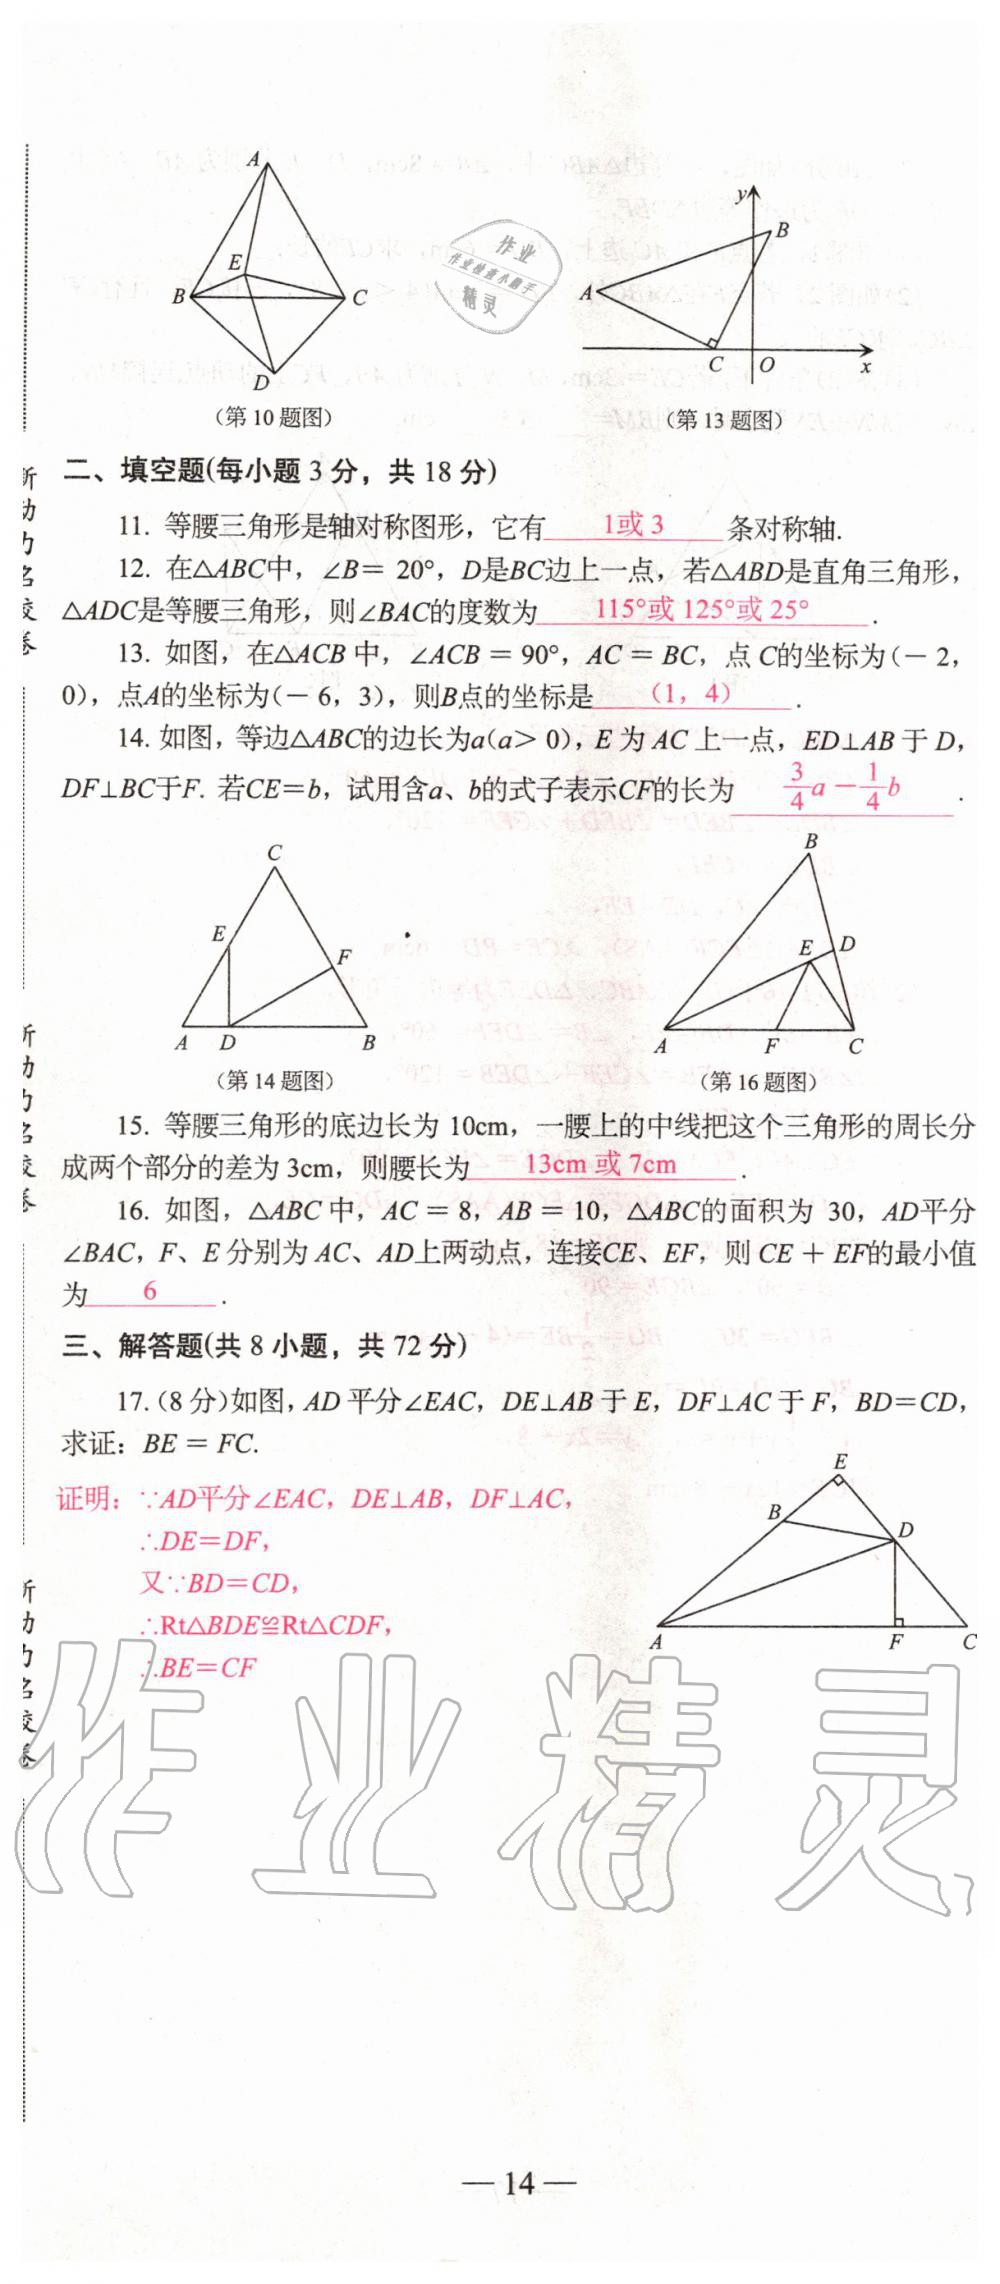 A
E
B
C
D
(第10题图)
作业
作业检查小助手
精灵
y
B
A
C
O
x
(第13题图)
二、填空题(每小题3分，共18分)
11. 等腰三角形是轴对称图形，它有 1或3 条对称轴.
12. 在△ABC中，∠B= 20°，D是BC边上一点，若△ABD是直角三角形，
△ADC是等腰三角形，则∠BAC的度数为 115°或125°或25° .
13. 如图，在△ACB中，∠ACB = 90°，AC = BC，点C的坐标为(－2，
0)，点A的坐标为(－6，3)，则B点的坐标是 (1，4) .
14. 如图，等边△ABC的边长为a(a＞0)，E为AC上一点，ED⊥AB于D，
DF⊥BC于F. 若CE=b，试用含a、b的式子表示CF的长为 3/4 a－1/4 b .
C
E
F
A
D
B
(第14题图)
B
E
D
A
F
C
(第16题图)
15. 等腰三角形的底边长为10cm，一腰上的中线把这个三角形的周长分
成两个部分的差为3cm，则腰长为 13cm或7cm .
16. 如图，△ABC中，AC = 8，AB = 10，△ABC的面积为30，AD平分
∠BAC，F、E分别为AC、AD上两动点，连接CE、EF，则CE + EF的最小值
为 6 .
三、解答题(共8小题，共72分)
17. (8分)如图，AD平分∠EAC，DE⊥AB于E，DF⊥AC于F，BD=CD，
求证：BE = FC.
证明：∵AD平分∠EAC，DE⊥AB，DF⊥AC，
∴DE=DF，
又∵BD=CD，
∴Rt△BDE≌Rt△CDF，
∴BE=CF
E
B
D
A
F
C
作业精灵
— 14 —